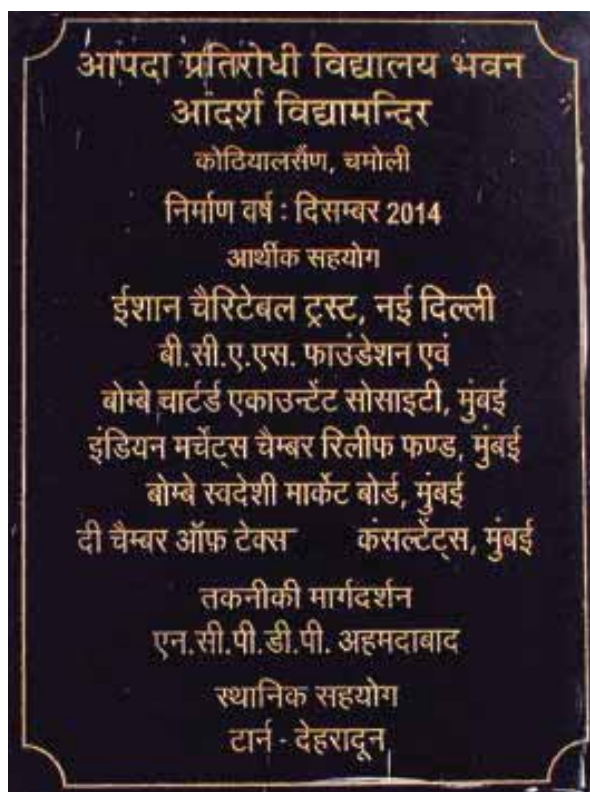 आपदा प्रतिरोधी विद्यालय भवन
आदर्श विद्यामन्दिर
कोठियालसैंण, चमोली
निर्माण वर्ष : दिसम्बर 2014
आर्थीक सहयोग
ईशान चैरिटेबल ट्रस्ट, नई दिल्ली
बी.सी.ए.एस. फाउंडेशन एवं
बोम्बे चार्टर्ड एकाउन्टेंट सोसाइटी, मुंबई
इंडियन मर्चेंट्स चैम्बर रिलीफ फण्ड, मुंबई
बोम्बे स्वदेशी मार्केट बोर्ड, मुंबई
दी चैम्बर ऑफ़ टेक्स कंसल्टेंट्स, मुंबई
तकनीकी मार्गदर्शन
एन.सी.पी.डी.पी. अहमदाबाद
स्थानिक सहयोग
टार्न - देहरादून